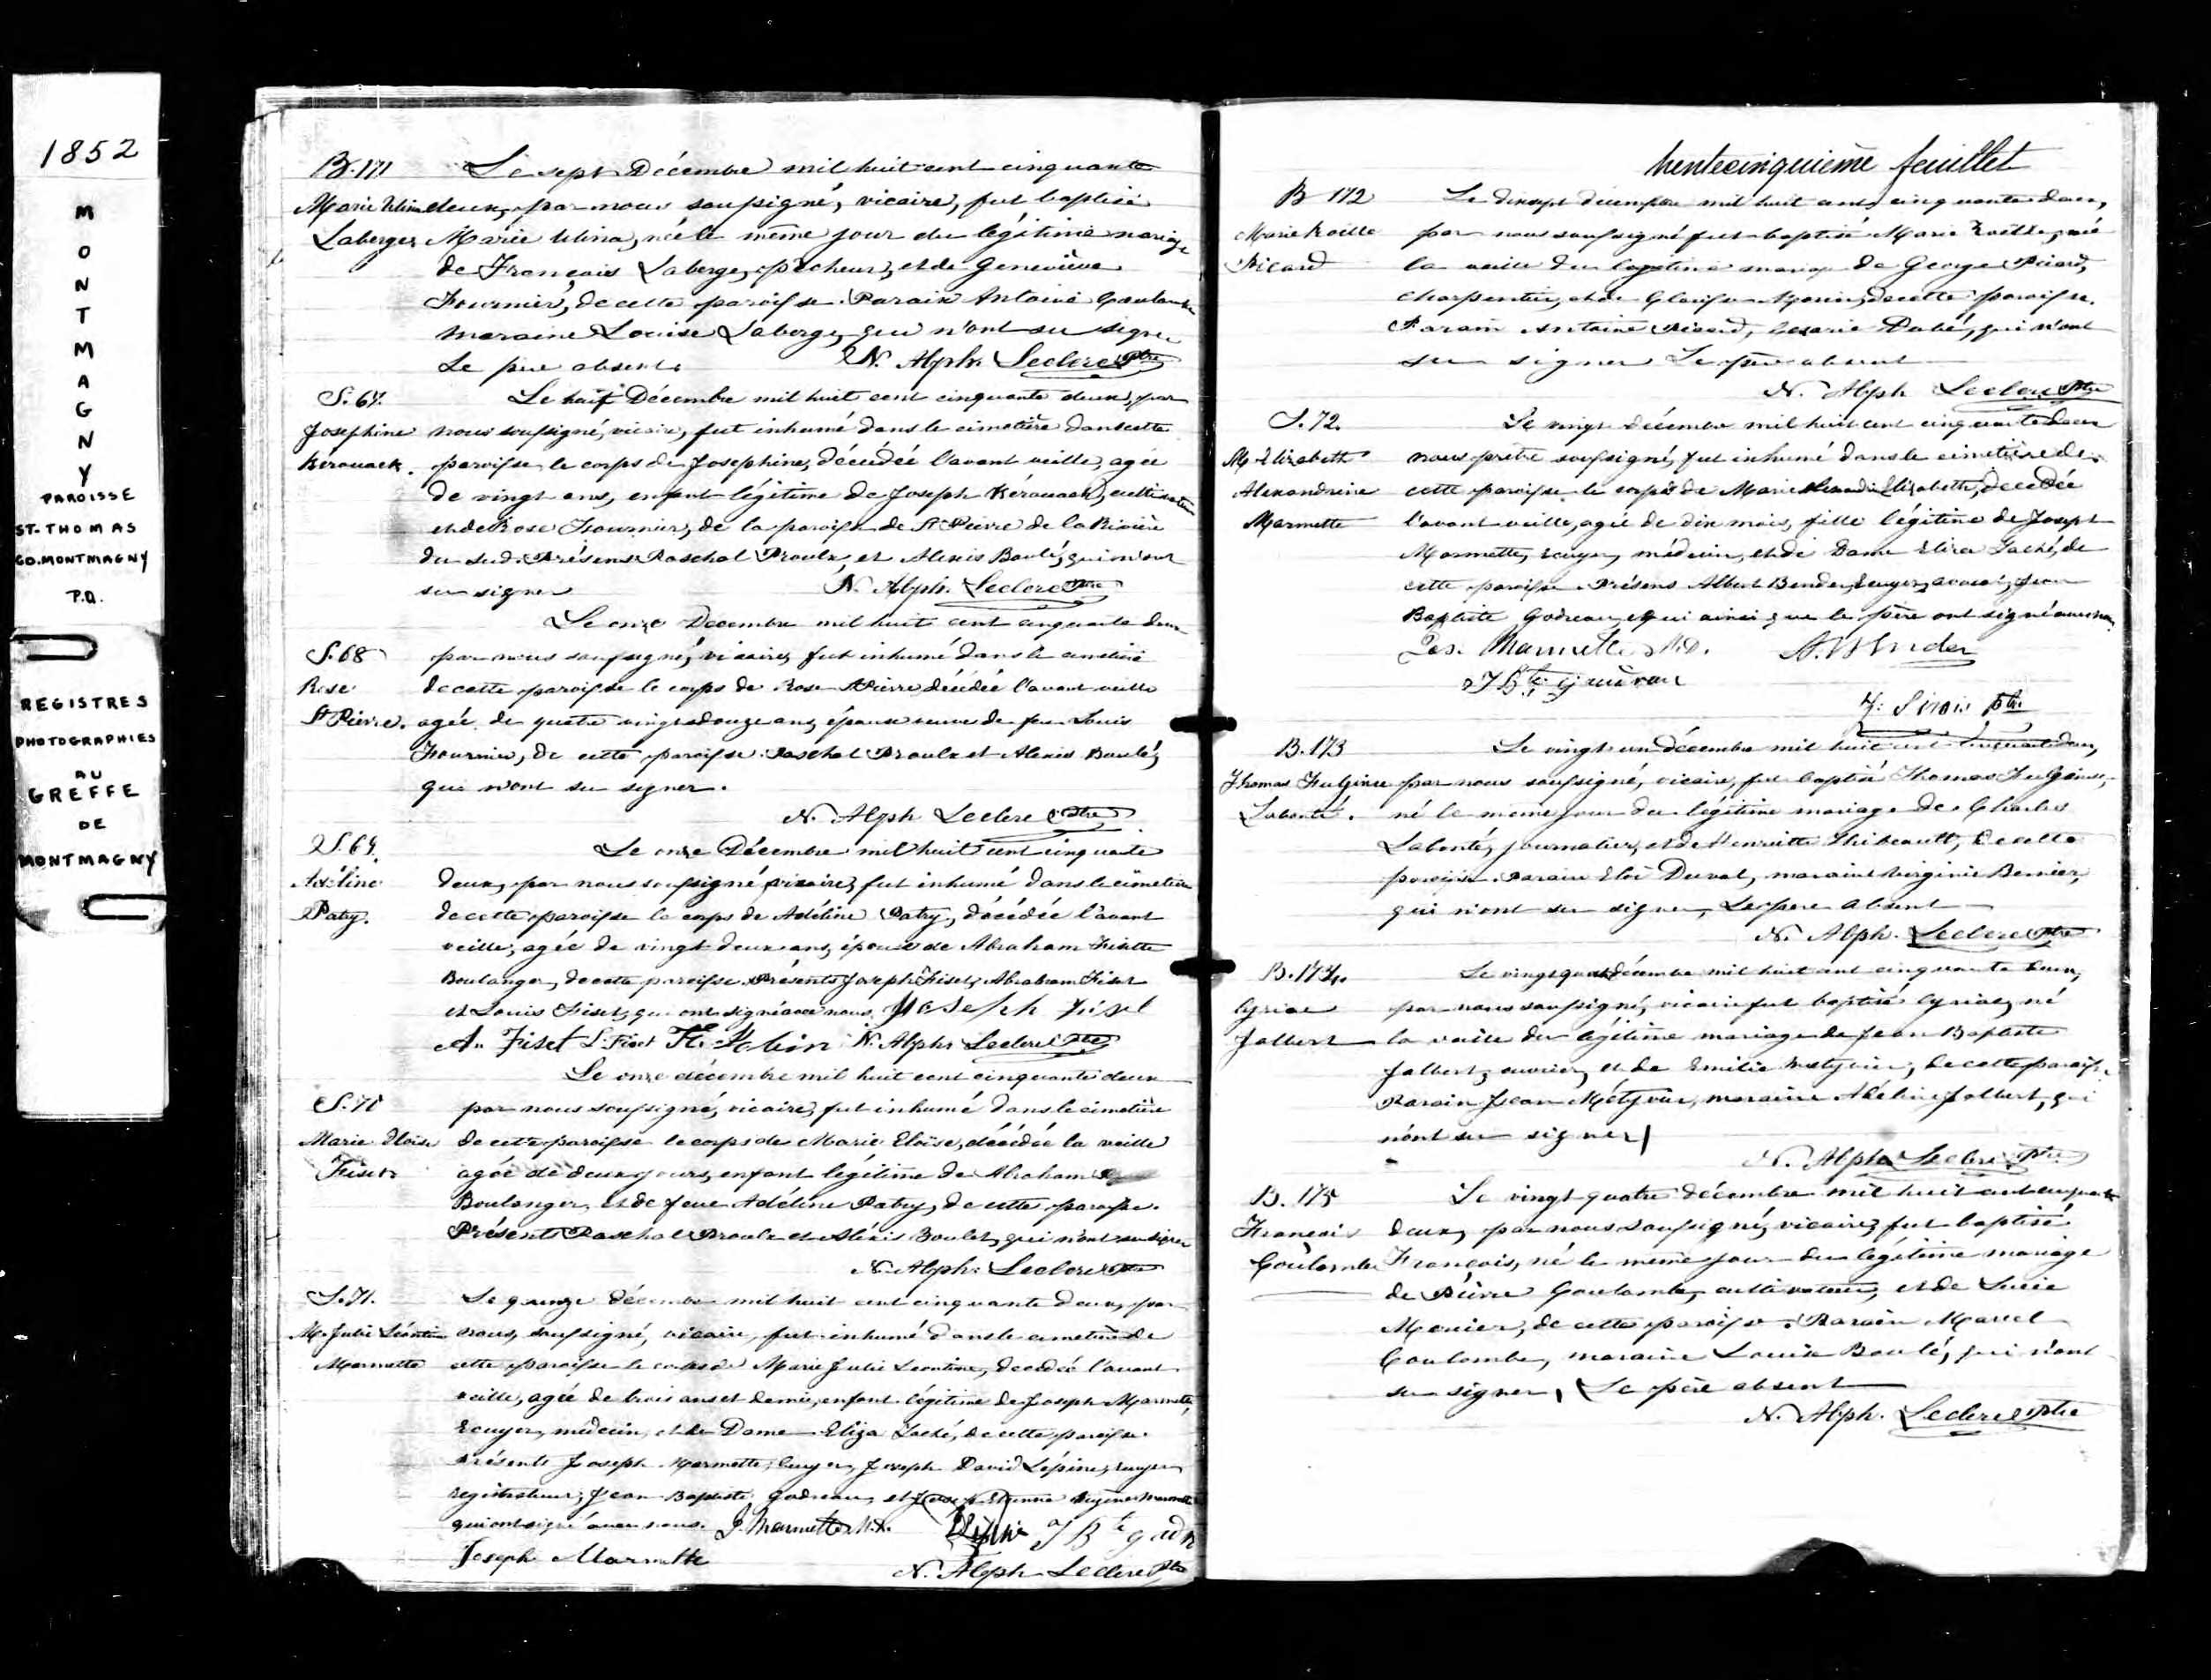 1852
MONTMAGNY
PAROISSE
ST. THOMAS
CO. MONTMAGNY
P.Q.
REGISTRES
PHOTOGRAPHIES
AU
GREFFE
DE
MONTMAGNY
B. 171
Marie
Laberge
Le sept Décembre mil huit cent cinquante
deux, par nous soussigné, vicaire, fut baptisée
Marie née le même jour du légitime mariage
de François Laberge, pêcheur, et de Geneviève
Fournier, de cette paroisse. Parain Antoine
maraine Louise Laberge, qui n'ont su signer
Le père absent. N. Alph. Leclerc Ptre
S. 67.
Josephine
Kérouack.
Le huit Décembre mil huit cent cinquante deux, par
nous soussigné, vicaire, fut inhumé dans le cimetière dans cette
paroisse le corps de Josephine, décédée l'avant veille, agée
de vingt ans, enfant légitime de Joseph Kérouack, cultivateur
et de Rose Fournier, de la paroisse de St Pierre de la Rivière
du Sud. Présens Paschal Proulx, et Alexis Boulé, qui n'ont
su signer N. Alph. Leclerc Ptre
S. 68
Rose
St Pierre.
Le onze Décembre mil huit cent cinquante deux
par nous soussigné, vicaire, fut inhumé dans le cimetière
de cette paroisse le corps de Rose St Pierre décédée l'avant veille
agée de quatre vingt douze ans, épouse veuve de feu Louis
Fournier, de cette paroisse. Paschal Proulx et Alexis Boulé,
qui n'ont su signer.
N. Alph Leclerc Ptre
S. 69.
Adéline
Patry.
Le onze Décembre mil huit cent cinquante
deux, par nous soussigné vicaire, fut inhumé dans le cimetière
de cette paroisse le corps de Adéline Patry, décédée l'avant
veille, agée de vingt deux ans, épouse de Abraham Fisette
Boulanger, de cette paroisse. Présents Joseph Fiset, Abraham Fiset
et Louis Fiset, qui ont signé avec nous. Joseph Fiset
A. Fiset L. Fiset N. Alph. Leclerc Ptre
S. 70
Marie Eloïse
Fiset
Le onze décembre mil huit cent cinquante deux
par nous soussigné, vicaire, fut inhumé dans le cimetière
de cette paroisse le corps de Marie Eloïse, décédée la veille
agée de deux jours, enfant légitime de Abraham
Boulanger, et de feue Adéline Patry, de cette paroisse.
Présents Paschal Proulx et Aléxis Boulet, qui n'ont su signer
N. Alph. Leclerc Ptre
S. 71.
M. Julie Léontine
Marmette
Le quinze décembre mil huit cent cinquante deux, par
nous, soussigné, vicaire, fut inhumé dans le cimetière de
cette paroisse le corps de Marie Julie Léontine, décédée l'avant
veille, agée de trois ans et demie, enfant légitime de Joseph Marmette,
Ecuyer, médecin, et de Dame Eliza Taché, de cette paroisse.
Présents Joseph Marmette, Ecuyer, Joseph David Lépine, Ecuyer
registrateur, Jean Baptiste Godreau, et Joseph Etienne Eugène Marmette
qui ont signé avec nous. J. Marmette M.D.
Joseph Marmette N. Alph Leclerc Ptre
trentecinquième feuillet
B 172
Marie
Picard
Le dixsept décembre mil huit cent cinquante deux,
par nous soussigné fut baptisé Marie née
la veille du légitime mariage de George Picard,
charpentier, et de Morin, de cette paroisse.
Parain Antoine Picard, qui n'ont
su signer Le père absent
N. Alph Leclerc Ptre
S. 72.
M. Elizabeth
Alexandrine
Marmette
Le vingt décembre mil huit cent cinquante deux
nous prêtre soussigné, fut inhumé dans le cimetière de
cette paroisse le corps de Marie Elizabeth, décédée
l'avant veille, agée de dix mois, fille légitime de Joseph
Marmette, Ecuyer, médecin, et de Dame Eliza Taché, de
cette paroisse. Présens Albert Bender, Ecuyer, avocat, Jean
Baptiste Godreau, et qui ainsi que le père ont signé avec nous
Jos. Marmette M.D. A. Bender
J. Bte
Sirois Ptre
B. 173
Thomas Fulgence
Labonté.
Le vingt un décembre mil huit cent cinquante deux,
par nous soussigné, vicaire, fut baptisé Thomas Fulgence,
né le même jour du légitime mariage de Charles
Labonté, journalier, et de Henriette Thibeault, de cette
paroisse. Parain Eloi Duval, maraine Virginie Bernier,
qui n'ont su signer, Le père absent
N. Alph. Leclerc Ptre
B. 174.
Cyriac
Jalbert
Le vingt quatre décembre mil huit cent cinquante deux,
par nous soussigné, vicaire fut baptisé Cyriac, né
la veille du légitime mariage de Jean Baptiste
Jalbert, ouvrier, et de Emilie de cette paroisse
Parain Jean maraine Adéline Jalbert, qui
n'ont su signer
N. Alph Leclerc Ptre
B. 175
François
Coulombe
Le vingt quatre décembre mil huit cent cinquante
deux, par nous soussigné, vicaire, fut baptisé
François, né le même jour du légitime mariage
de Pierre Coulombe, cultivateur, et de Lucie
de cette paroisse. Parain Marcel
Coulombe, maraine Louise Boulé, qui n'ont
su signer, Le père absent
N. Alph. Leclerc Ptre